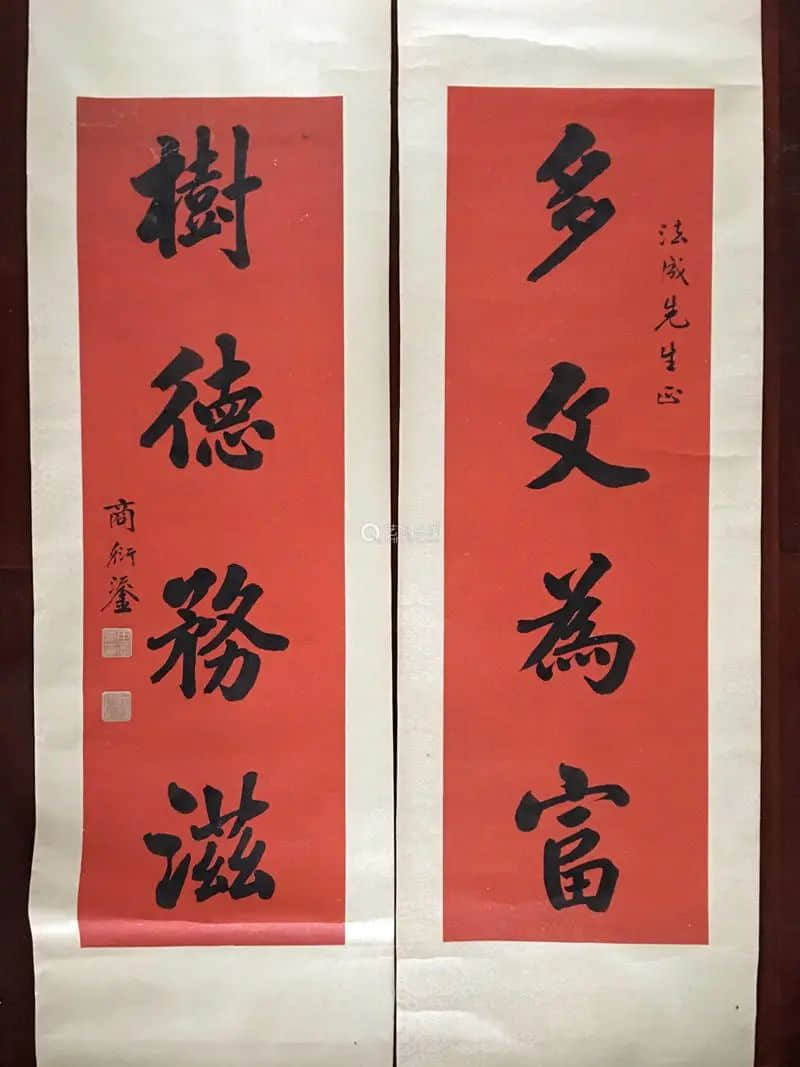 法成先生正
多文為富
樹德務滋
商衍鎏